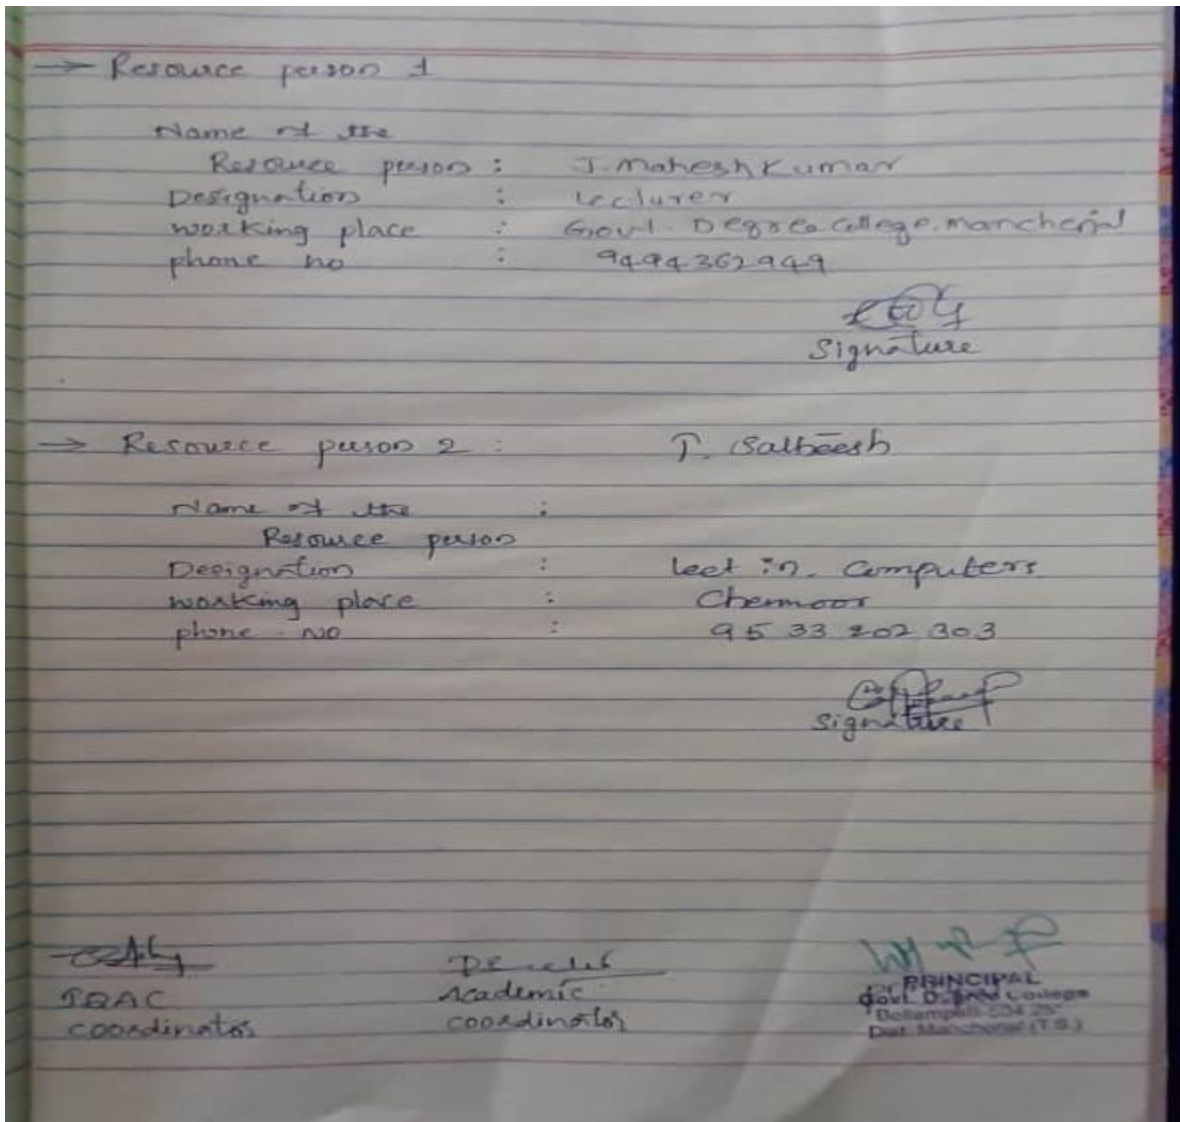 → Resource person 1
Name of the
Resource person : J. Mahesh Kumar
Designation : Lecturer
working place : Govt. Degree College, Mancherial
phone no : 9494362949
Signature
→ Resource person 2 : T.
Name of the :
Resource person
Designation : Lect in. Computers
working place : Chennoor
phone no : 95 33 202 303
Signature
IQAC Academic PRINCIPAL
coordinator coordinator Govt. Degree College
Bellampalli
Dist. Mancherial (T.S.)